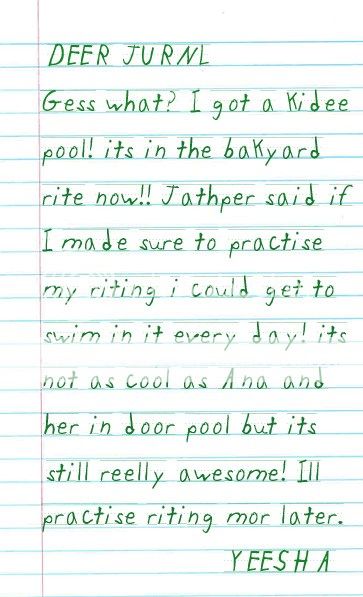 DEER JURNL
Gess what? I got a Kidee
pool! its in the baKyard
rite now!! Jathper said if
I made sure to practise
my riting i could get to
swim in it every day! its
not as cool as Ana and
her in door pool but its
still reelly awesome! Ill
practise riting mor later.
YEESHA